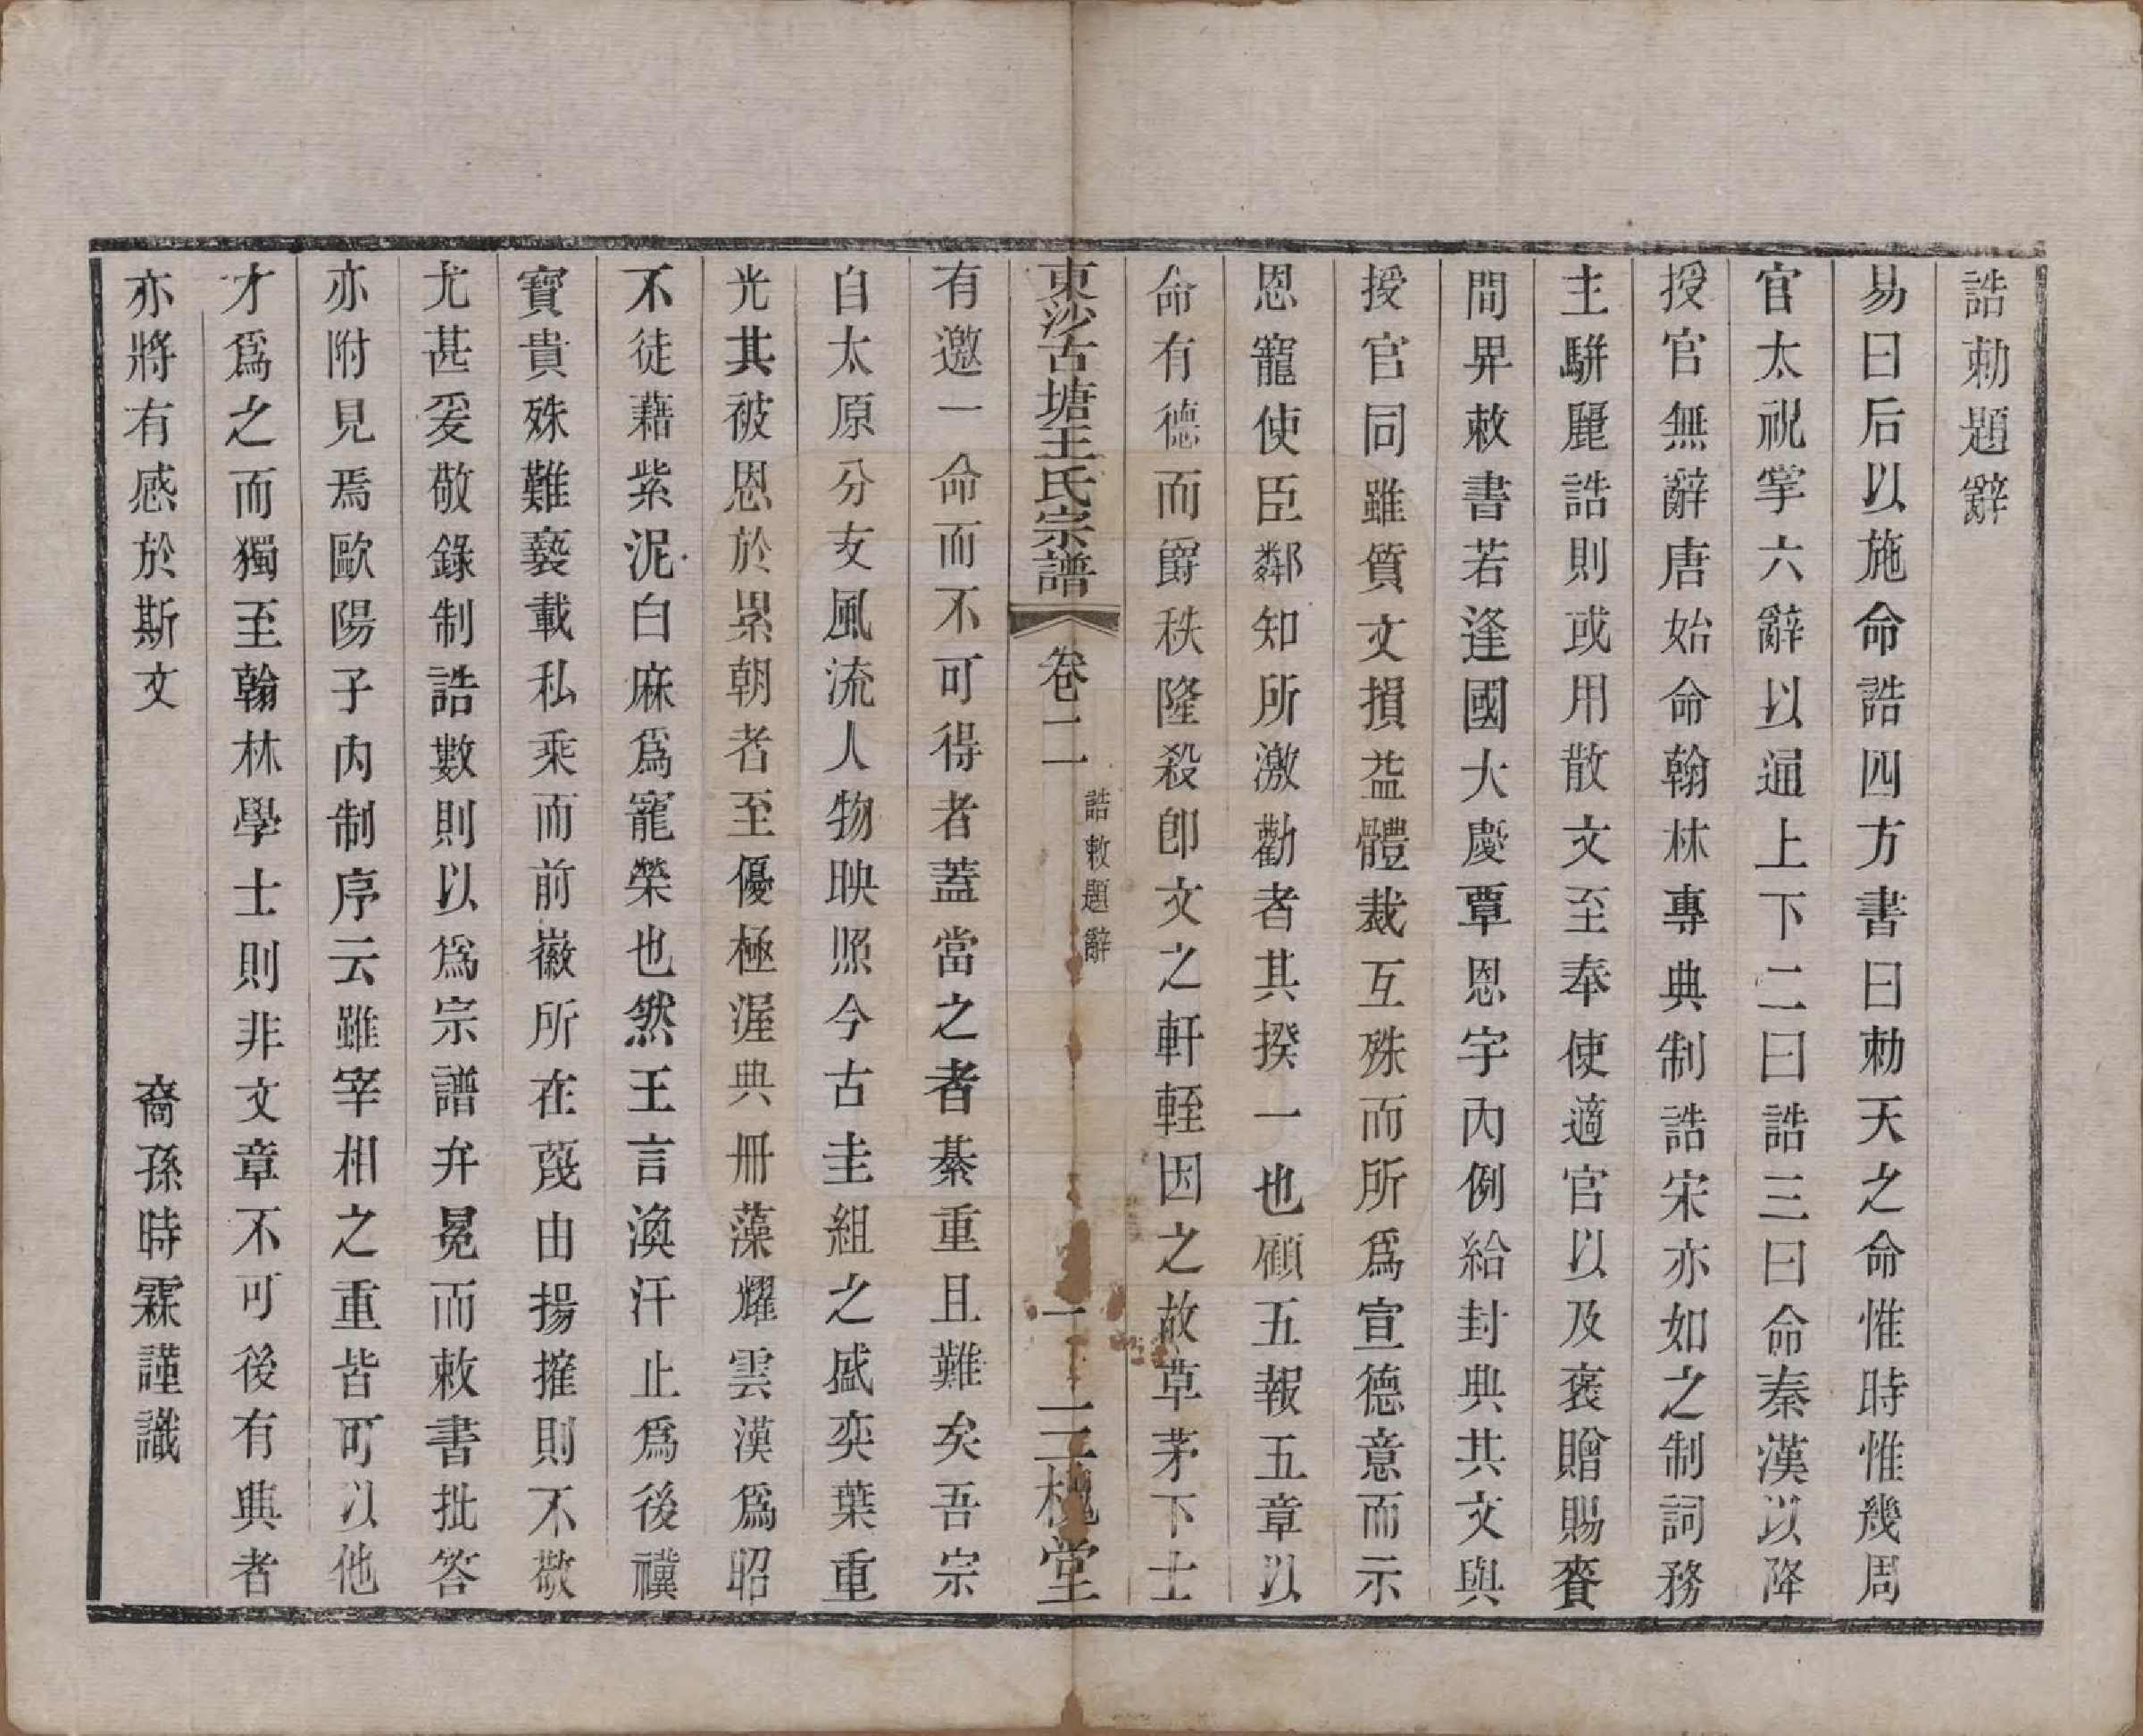 誥勅題辭
易曰后以施命誥四方書曰勅天之命惟時惟幾周
官太祝掌六辭以通上下二曰誥三曰命秦漢以降
授官無辭唐始命翰林專典制誥宋亦如之制詞務
主駢麗誥則或用散文至奉使適官以及褒贈賜賚
間畀敕書若逢國大慶覃恩宇內例給封典其文與
授官同雖質文損益體裁互殊而所爲宣德意而示
恩寵使臣鄰知所激勸者其揆一也顧五報五章以
命有德而爵秩隆殺卽文之軒輊因之故草茅下士
東沙古塘王氏宗譜
卷二
誥敕題辭
一
三槐堂
有邀一命而不可得者蓋當之者綦重且難矣吾宗
自太原分支風流人物映照今古圭組之盛奕葉重
光其被恩於累朝者至優極渥典冊藻耀雲漢爲昭
不徒藉紫泥白麻爲寵榮也然王言渙汗止爲後禩
寶貴殊難褻載私乘而前徽所在蔑由揚搉則不敬
尤甚爰敬錄制誥數則以爲宗譜弁冕而敕書批答
亦附見焉歐陽子內制序云雖宰相之重皆可以他
才爲之而獨至翰林學士則非文章不可後有典者
亦將有感於斯文
裔孫時霖謹識